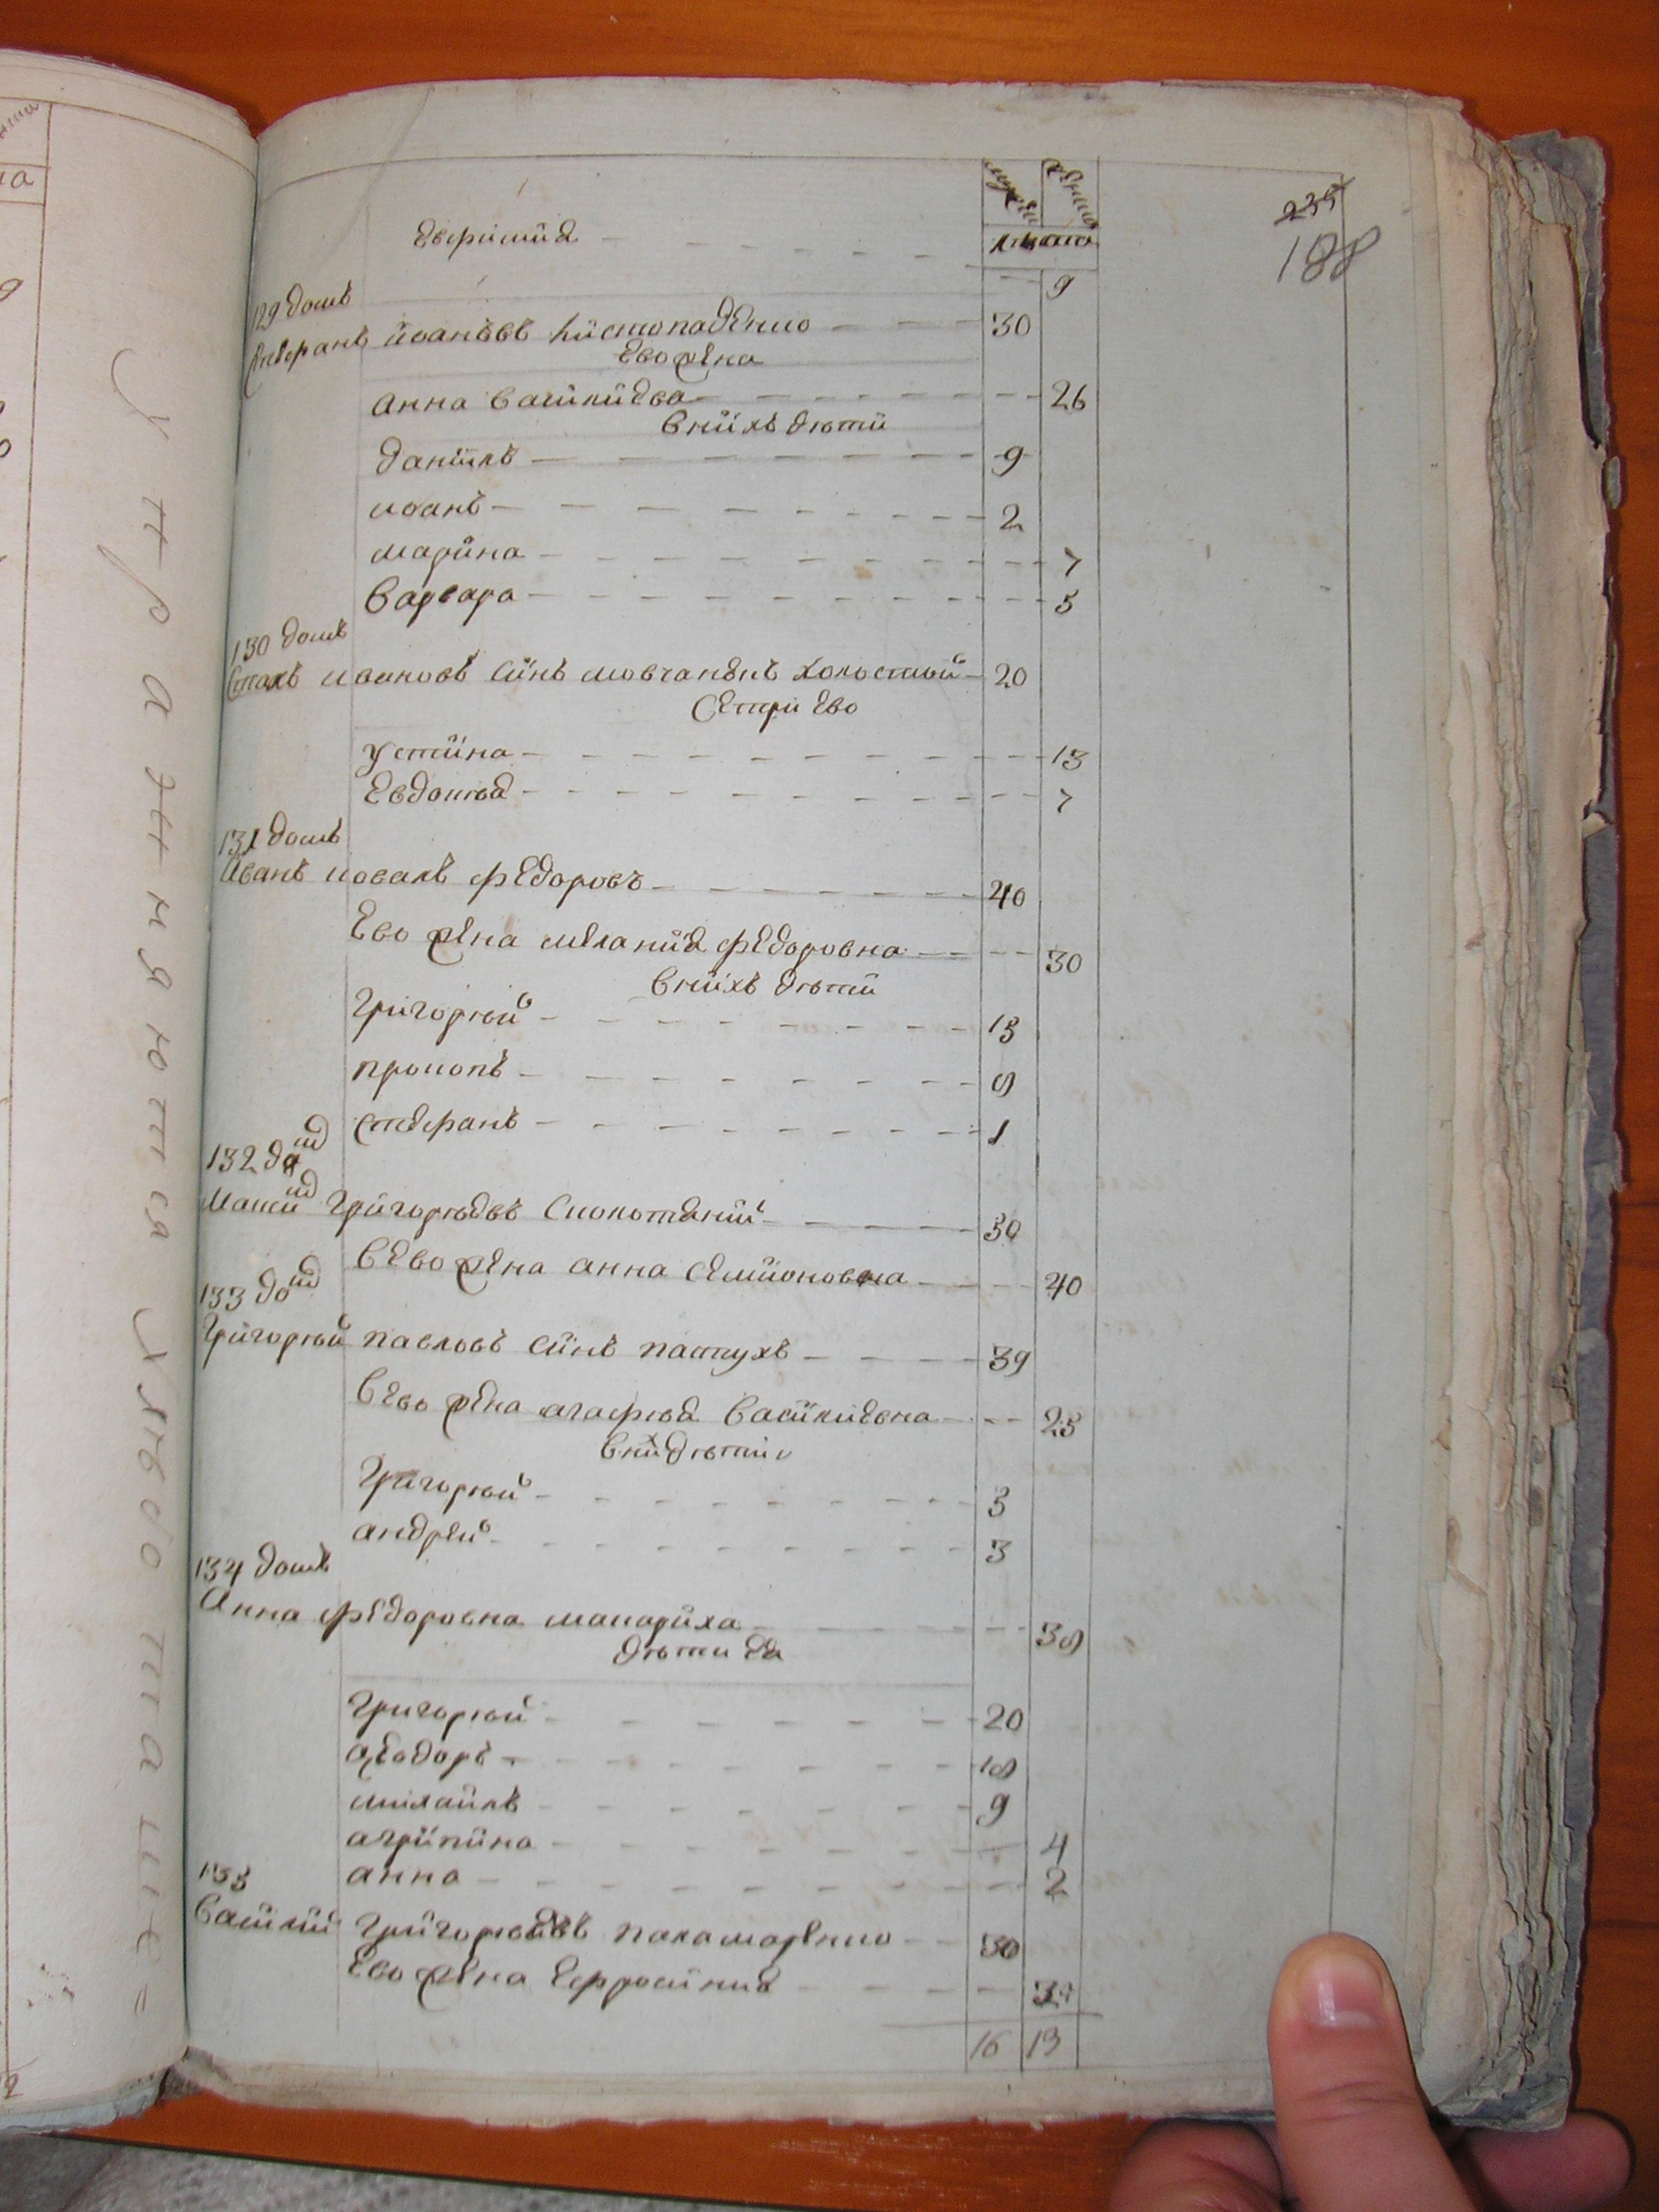 мужеска женска
235
188
лѣта
Евфимиа - - - - - 9
129 домъ
Стефанъ Иоановъ Листопаденко - - - 30
Ево жена
Анна Василиева - - - - - 26
В нихъ дѣти
Даниилъ - - - - - 9
Иоанъ - - - - - 2
Марина - - - - - 7
Варвара - - - - - 5
130 домъ
Стахъ Ивановъ синъ Мовчанъ холостый - 20
Сетри Ево
Устина - - - - - 13
Евдокия - - - - - 7
131 домъ
Иванъ Ковалъ Федоровъ - - - - 40
Ево жена Меланиа Федоровна - - - 30
В нихъ дѣти
Григорий - - - - - 15
Прокопъ - - - - - 8
Стефанъ - - - - - 1
132 дом
Максим Григориевъ - - - 30
В Ево жена Анна Семионовна - - - 40
133 дом
Григорий Павловъ синъ Пастухъ - - - 39
В Ево жена Агафиа Василиевна - - - 25
В них дѣти
Григорий - - - - - 5
Андрей - - - - - 3
134 домъ
Анна Федоровна Макариха - - - - 38
Дѣти Еа
Григорий - - - - - 20
Феодоръ - - - - - 18
Михаилъ - - - - - 9
Агрипина - - - - - 4
Анна - - - - - 2
135
Василий Григориевъ Паламаренко - - 30
Ево жена Ефросиниа - - - -
16 19